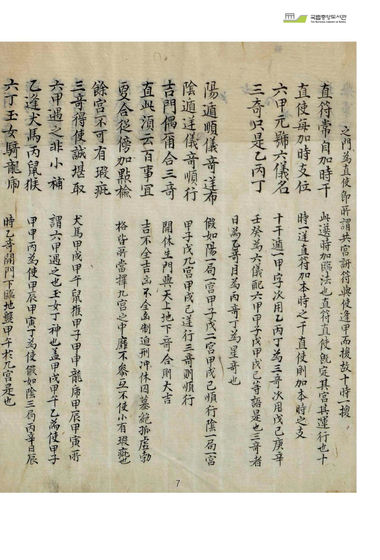 국립중앙도서관
之門爲直使即所謂其宮訴符與使逢甲而換故十時一換
直符常自加時干 此選時加臨法也直符直使旣定其宮其運行也十
直使每加時支位 時一遷直符加本時之干直使則加本時之支
六甲元號六儀名 十干遁一甲字次用乙丙丁爲三奇次用戊己庚辛
三奇只是乙丙丁 壬癸爲六儀配六甲甲子戊甲戌己等語是也三奇者
日爲乙奇月爲丙奇丁爲星奇也
陽遁順儀奇逆布 假如陽一局一宮甲子戊二宮甲戌己順行陰一局一宮
陰遁逆儀奇順行 甲子戊九宮甲戌己逆行三奇則順行
吉門偶爾合三奇 開休生門與天上地下奇合則大吉
直此須云百事宜 吉不全吉凶不全凶制迫刑冲休囚墓絶孤虛勃
更合從傍加點檢 格皆所當擇九宮之中靡不參互不使小有瑕疵也
餘宮不可有瑕疵
三奇得使誠堪取 犬馬甲戌甲午鼠猴甲子甲申龍虎甲辰甲寅所
六甲遇之非小補 謂六甲遇之也玉女丁神也盖甲戌甲午乙爲使甲子
乙逢犬馬丙鼠猴 甲申丙爲使甲辰甲寅丁爲使假如陰三局丙辛日辰
六丁玉女騎龍虎 時乙奇開門下臨地盤甲午於九宮是也
7